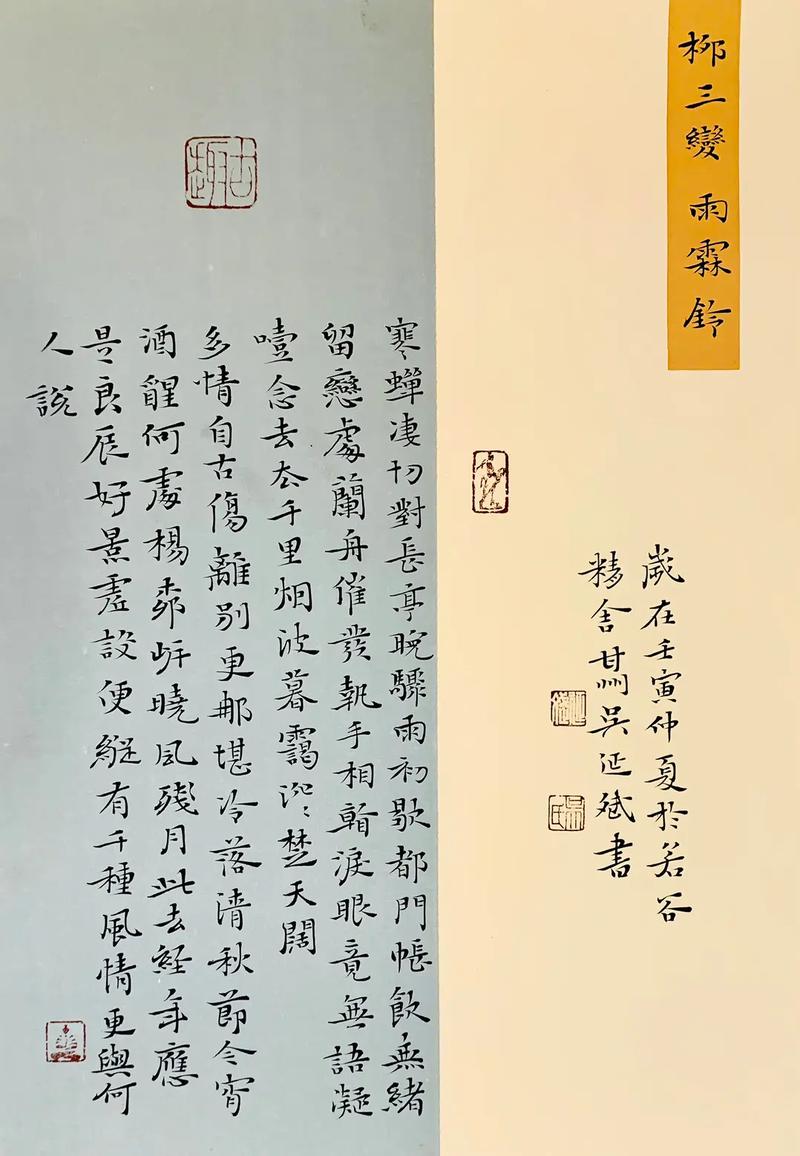 柳三變 雨霖鈴
歲在壬寅仲夏於若谷
精舍甘州吳延斌書
古趣
寒蟬凄切對長亭晚驟雨初歇都門帳飲無緒
留戀處蘭舟催發執手相看淚眼竟無語凝
噎念去厺千里烟波暮靄沉〻楚天闊
多情自古傷離別更那堪冷落清秋節今宵
酒醒何處楊桺岸曉風殘月此去經年應
是良辰好景虛設便縱有千種風情更與何
人說